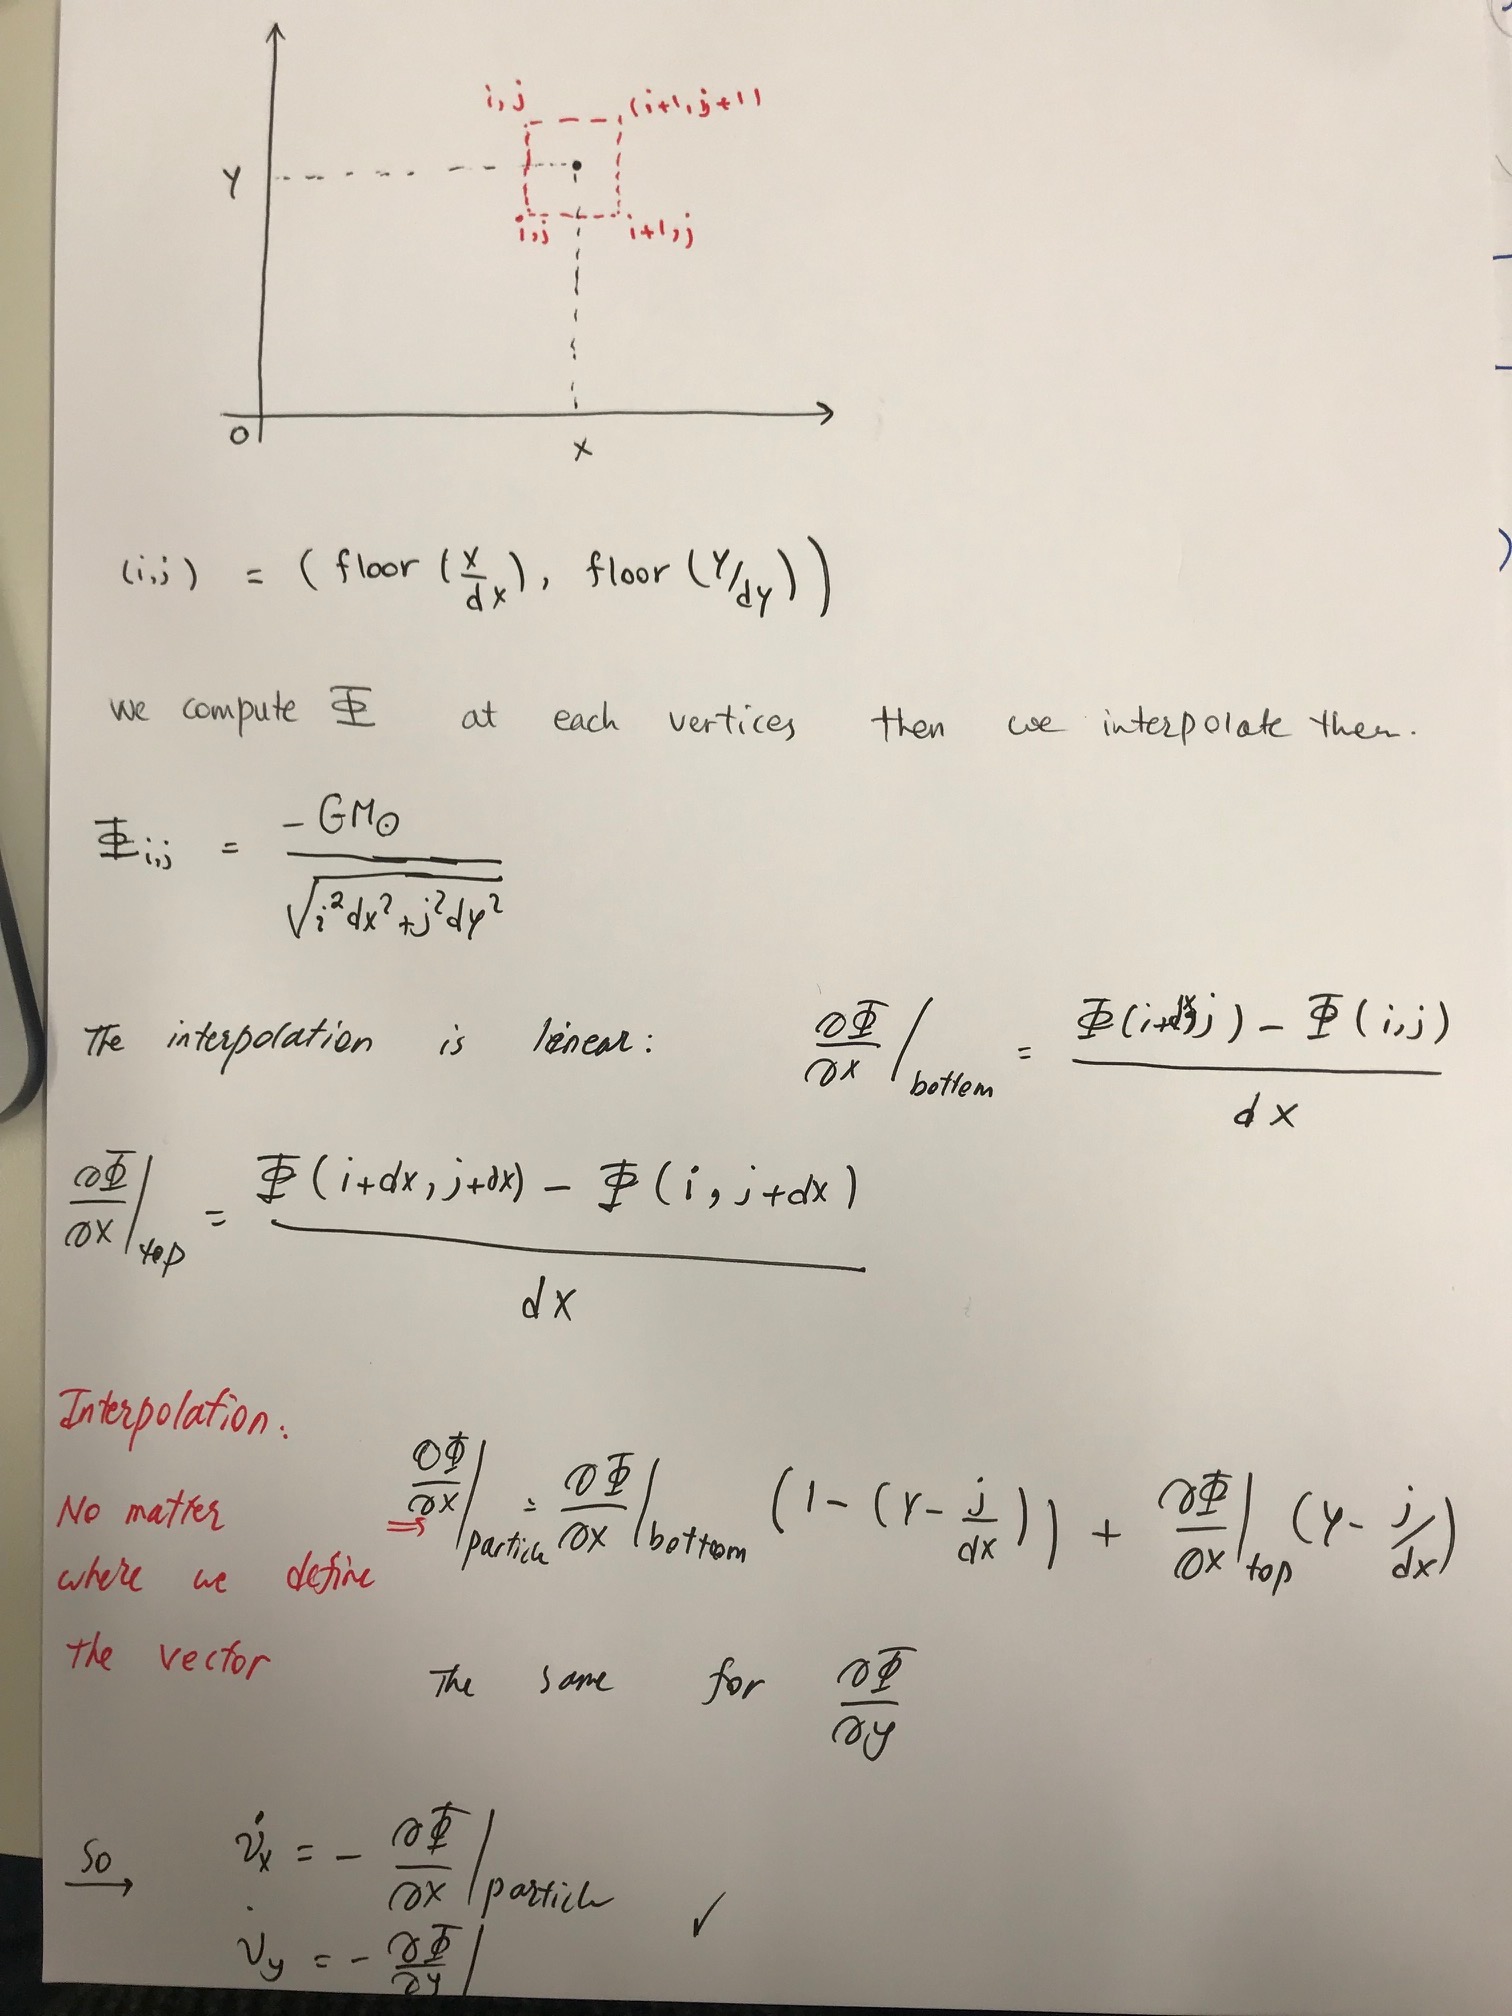 i,j (i+1,j+1)
Y
i,j i+1,j
O
X
(i,j) = (floor(x/dx), floor(Y/dy))
we compute Φ at each vertices then we interpolate them.
Φi,j = -GM⊙ / √(i²dx²+j²dy²)
The interpolation is linear: ∂Φ/∂x|bottom = (Φ(i+dx,j) - Φ(i,j)) / dx
∂Φ/∂x|top = (Φ(i+dx, j+dx) - Φ(i, j+dx)) / dx
Interpolation:
No matter ⇒ ∂Φ/∂x|particle = ∂Φ/∂x|bottom (1-(Y-j/dx)) + ∂Φ/∂x|top (Y-j/dx)
where we define
the vector The same for ∂Φ/∂y
So → v̇x = - ∂Φ/∂x|particle ✓
v̇y = - ∂Φ/∂y|